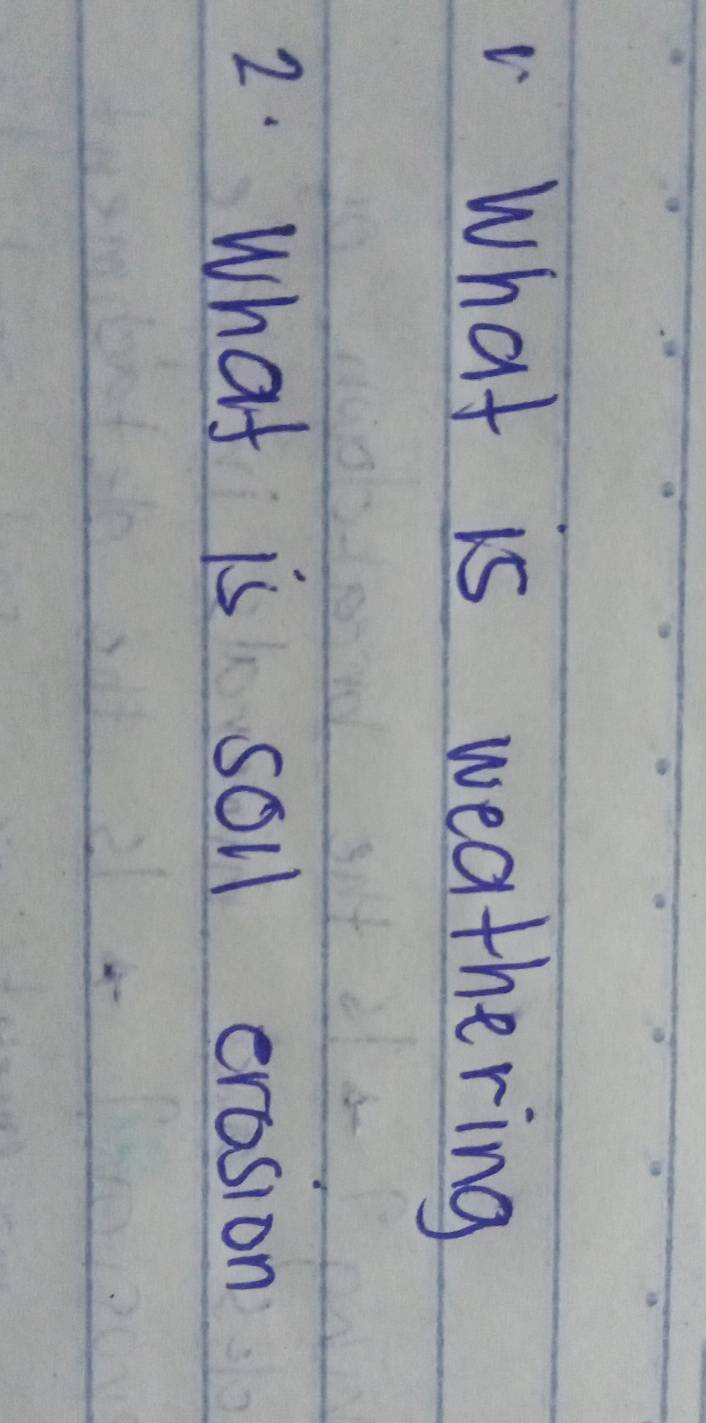 1. What is weathering
2. What is soil erosion